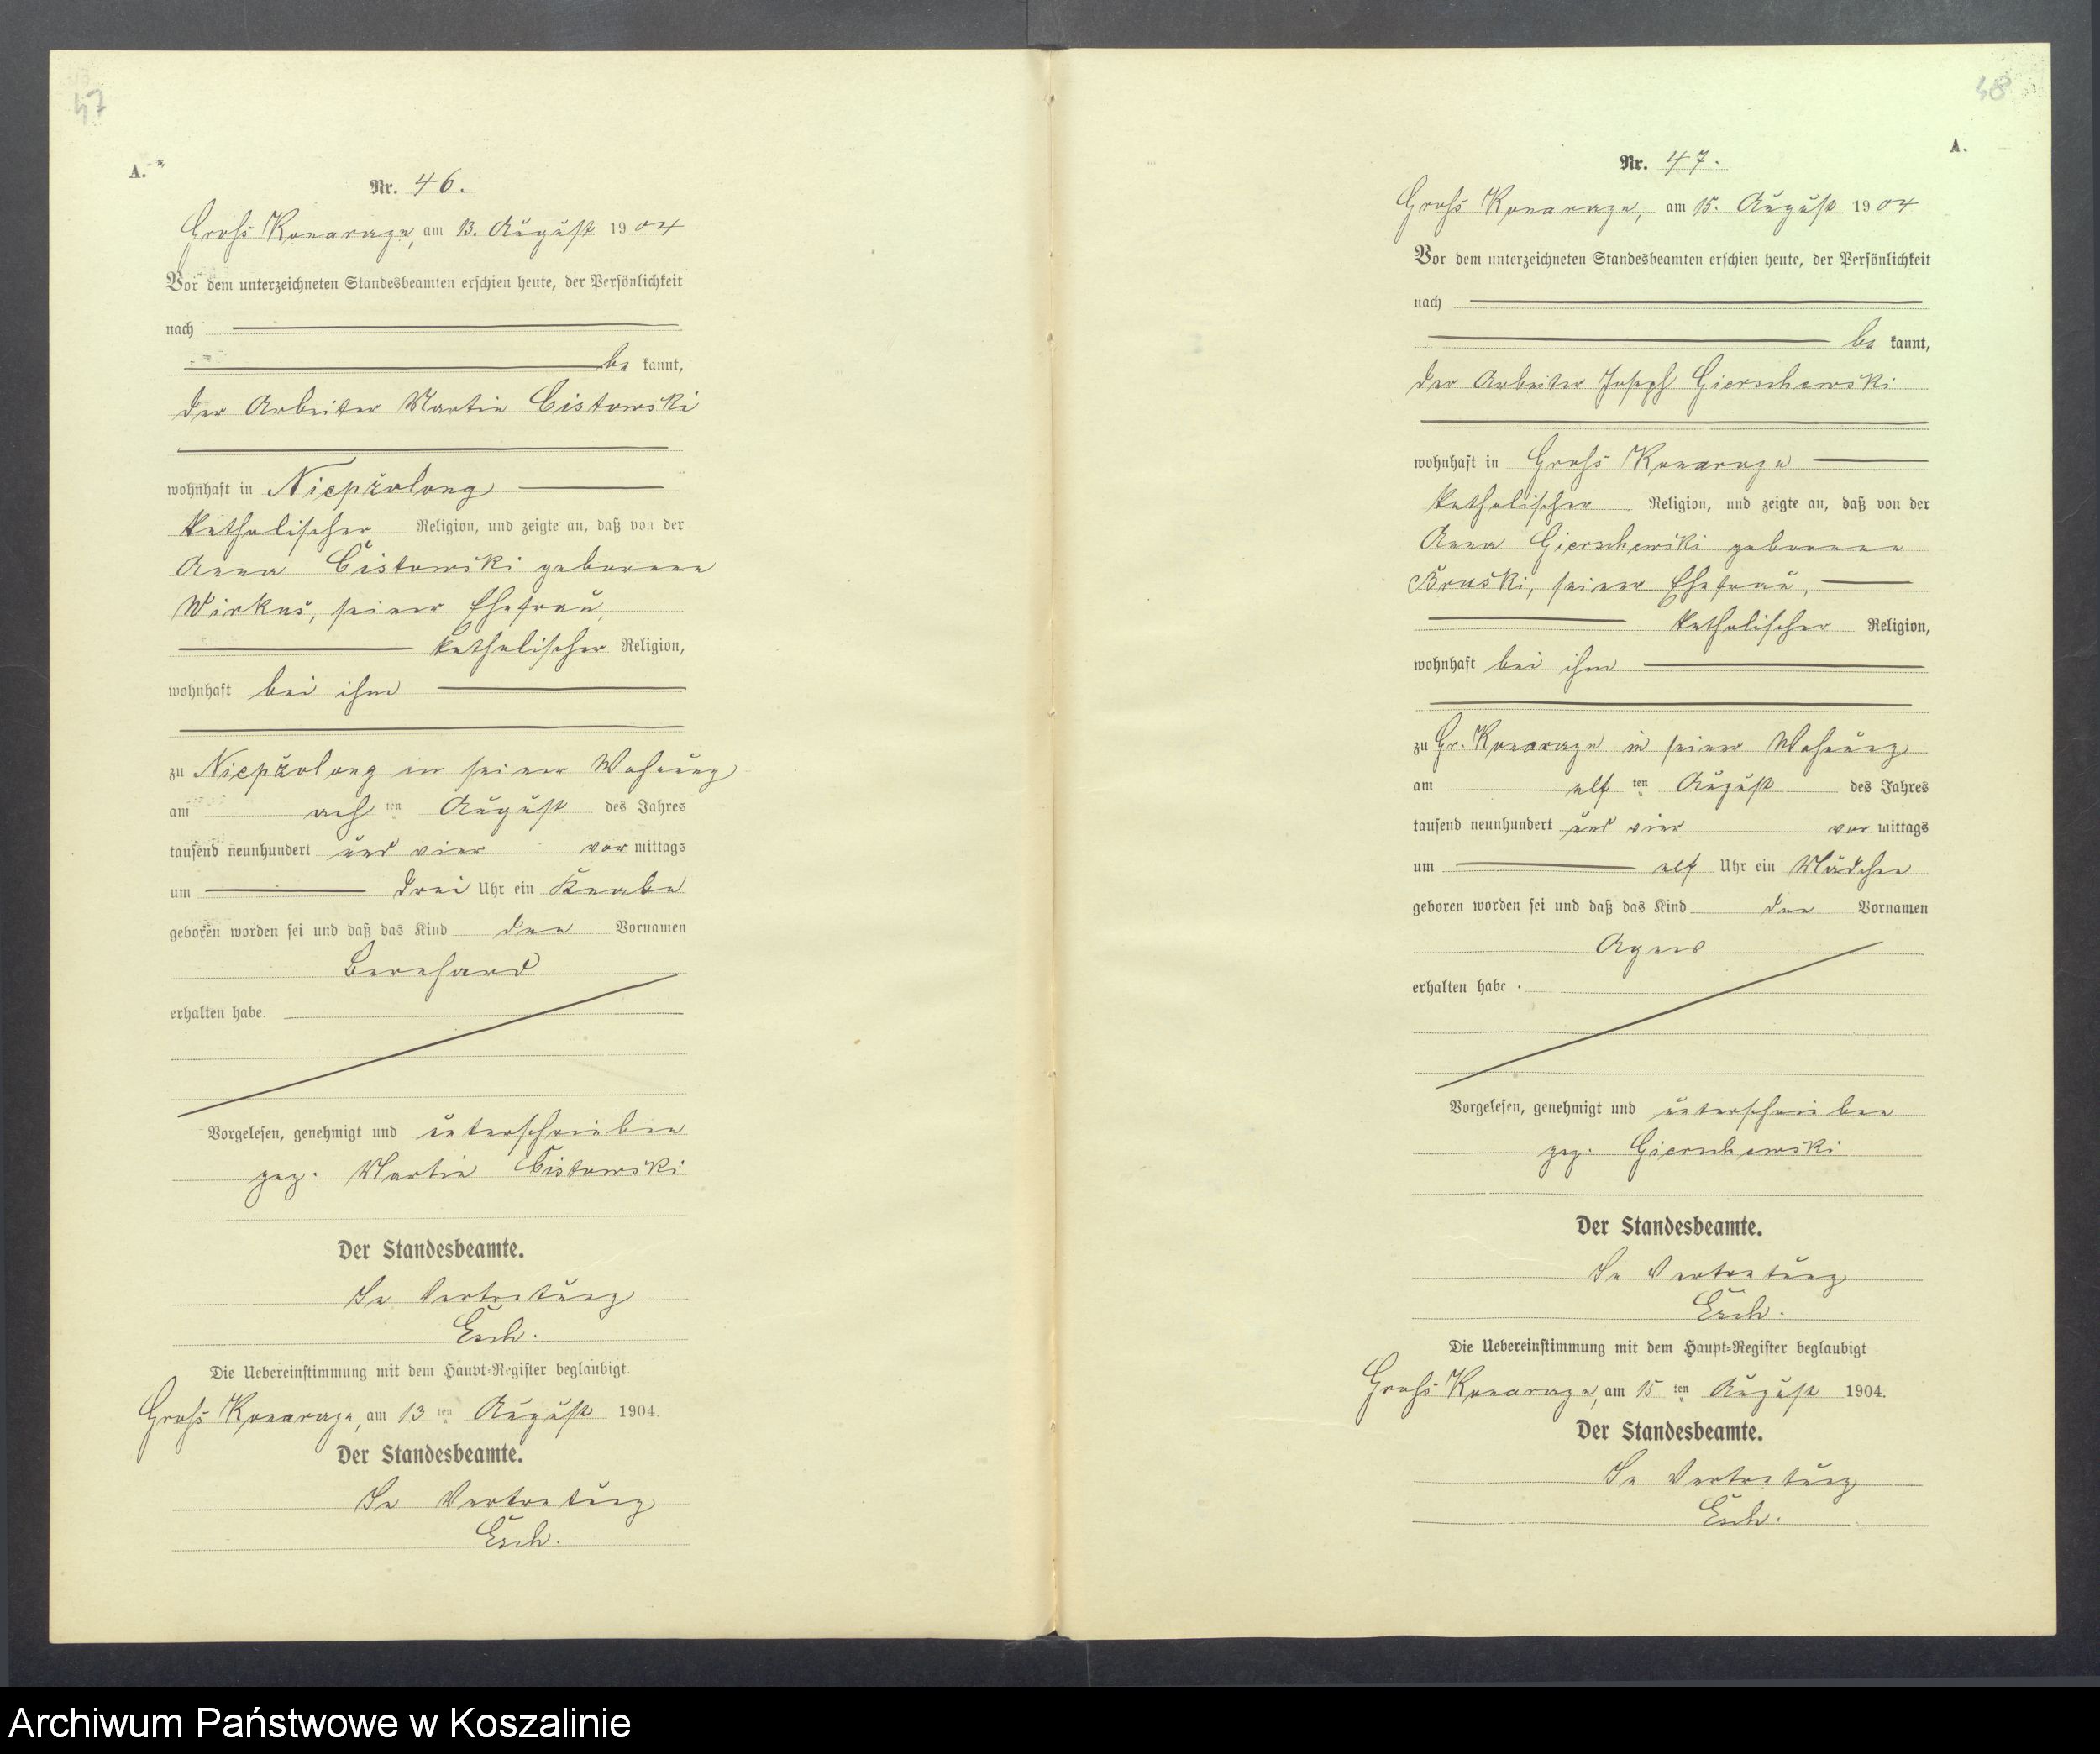 47
A.
Nr. 46.
Groß Konarzyn, am 13. August 1904
Vor dem unterzeichneten Standesbeamten erschien heute, der Persönlichkeit
nach
be kannt,
der Arbeiter Martin Cistowski
wohnhaft in Niepržolong
katholischer Religion, und zeigte an, daß von der
Anna Cistowski geborene
Wirkus, seiner Ehefrau,
katholischer Religion,
wohnhaft bei ihm
zu Niepržolong in seiner Wohnung
am ach ten August des Jahres
tausend neunhundert und vier vor mittags
um drei Uhr ein Knabe
geboren worden sei und daß das Kind den Vornamen
Bernhard
erhalten habe.
Vorgelesen, genehmigt und unterschrieben
gez. Martin Cistowski
Der Standesbeamte.
In Vertretung
Esch.
Die Uebereinstimmung mit dem Haupt-Register beglaubigt.
Groß Konarzyn, am 13 ten August 1904.
Der Standesbeamte.
In Vertretung
Esch.
48
A.
Nr. 47.
Groß Konarzyn, am 15. August 1904
Vor dem unterzeichneten Standesbeamten erschien heute, der Persönlichkeit
nach
be kannt,
der Arbeiter Joseph Gierschewski
wohnhaft in Groß Konarzyn
katholischer Religion, und zeigte an, daß von der
Anna Gierschewski geborenen
Bruski, seiner Ehefrau,
katholischer Religion,
wohnhaft bei ihm
zu Gr. Konarzyn in seiner Wohnung
am elf ten August des Jahres
tausend neunhundert und vier vor mittags
um elf Uhr ein Mädchen
geboren worden sei und daß das Kind den Vornamen
Agnes
erhalten habe.
Vorgelesen, genehmigt und unterschrieben
gez. Gierschewski
Der Standesbeamte.
In Vertretung
Esch.
Die Uebereinstimmung mit dem Haupt-Register beglaubigt
Groß Konarzyn, am 15 ten August 1904.
Der Standesbeamte.
In Vertretung
Esch.
Archiwum Państwowe w Koszalinie